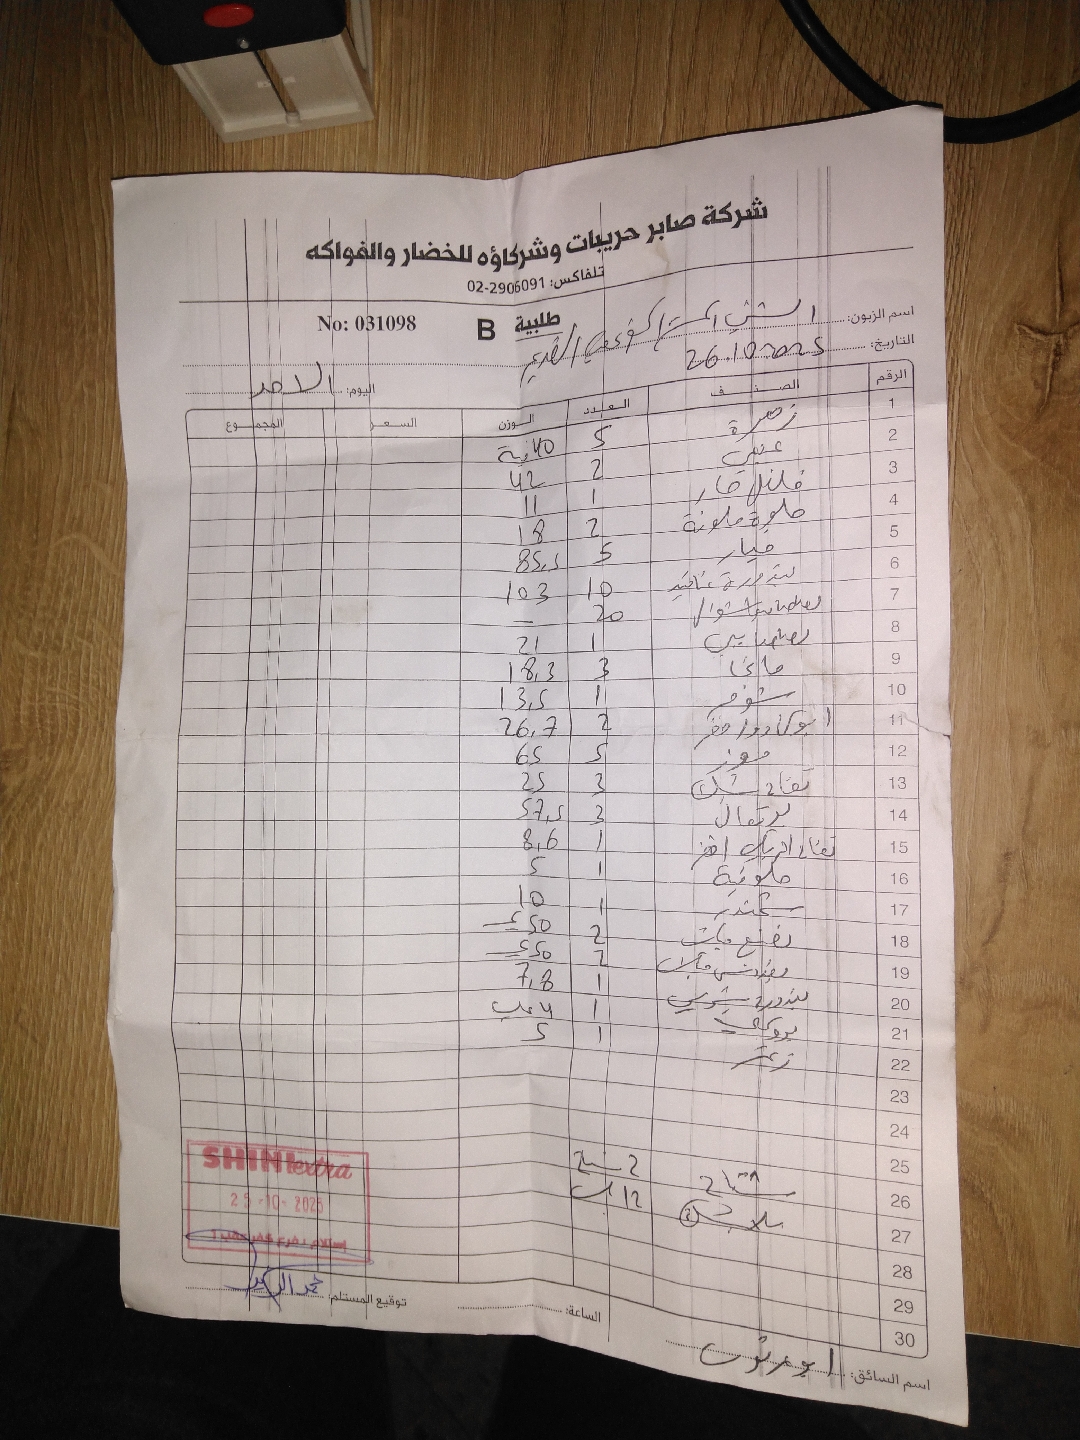 شركة صابر حريبات وشركاؤه للخضار والفواكه
تلفاكس: 02-2906091
No: 031098 B طلبية
اسم الزبون:
التاريخ: 26.10.2025
اليوم: الاحد
الرقم الصنف العدد الوزن السعر المجموع
1 زهرة 5 40
2 عنب 2 42
3 فلفل حار 1 11
4 حلوة ملونة 2 18
5 خيار 5 85,5
6 بندورة 10 103
7 بطاطا شوال 20 —
8 بطاطا 1 21
9 مانجا 3 18,3
10 ثوم 1 13,5
11 ابوكادو 2 26,7
12 موز 5 65
13 تفاح 3 25
14 برتقال 3 57,5
15 تفاح اخضر 1 8,6
16 ملوخية 1 5
17 شمندر 1 10
18 نعنع 2 50
19 بقدونس 2 50
20 بندورة شيري 1 7,8
21 1
22 زعتر 1 5
23
24
25
26 2
27 12
28
29
30
SHINI extra
25-10-2025
توقيع المستلم:
الساعة:
اسم السائق: ابو